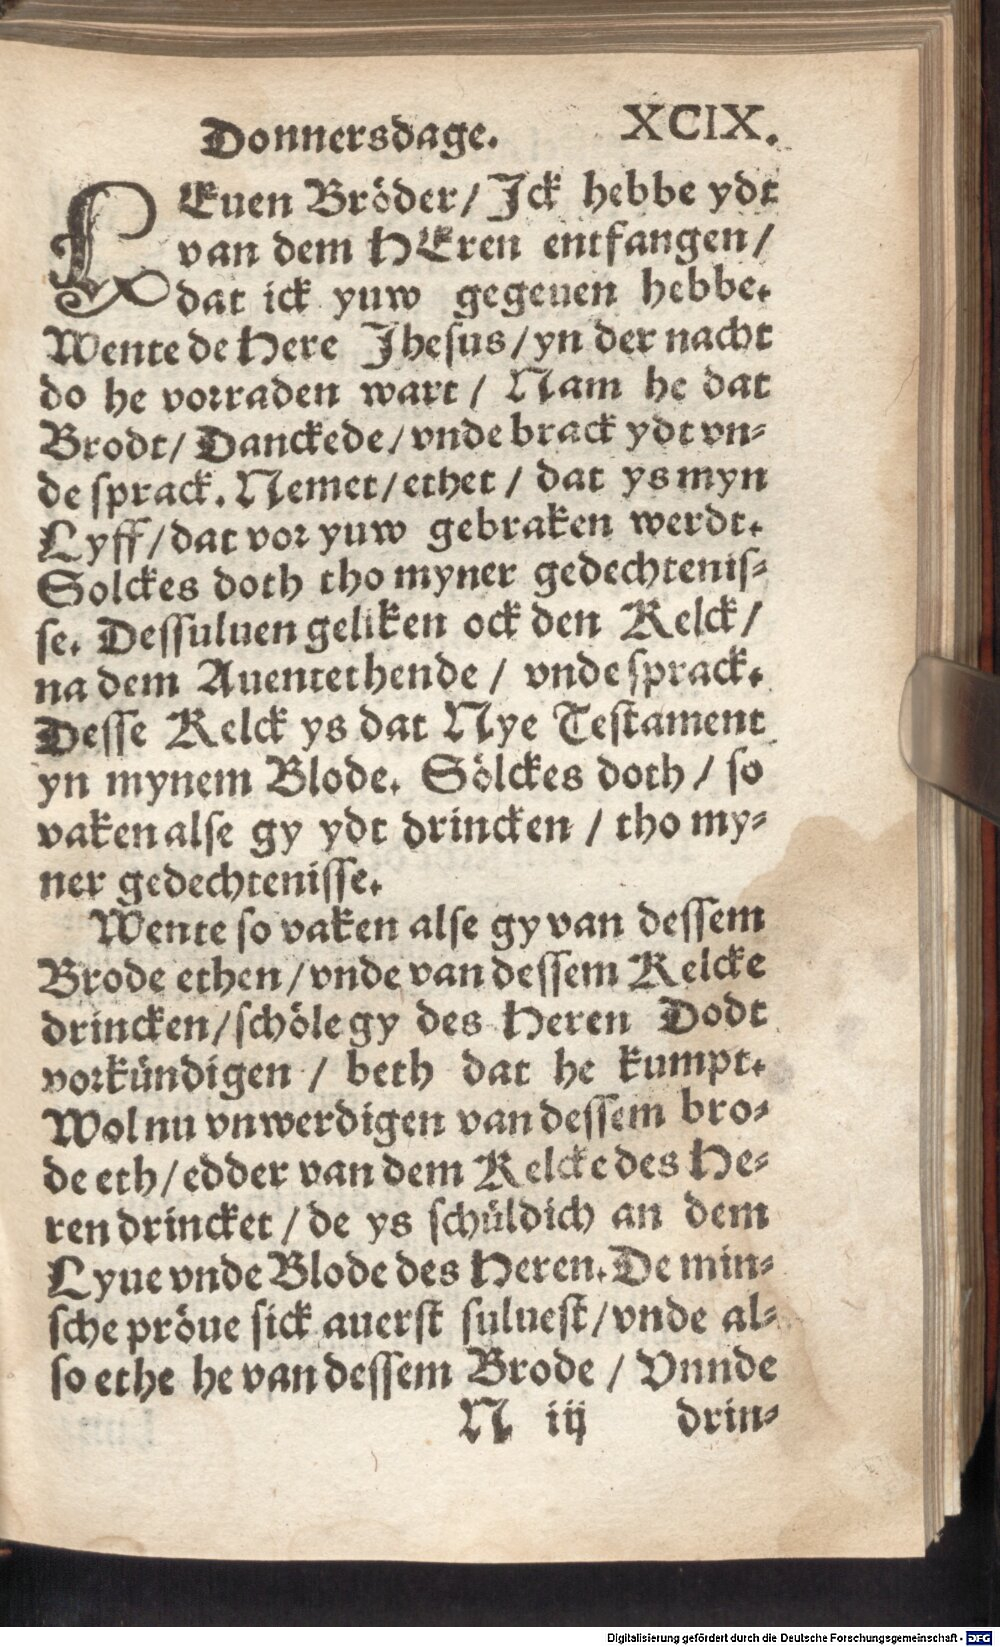 Donnersdage. XCIX.
LEuen Bröder/ Jck hebbe ydt
van dem HEren entfangen/
dat ick yuw gegeuen hebbe.
Wente de Here Jhesus/ yn der nacht
do he vorraden wart/ Nam he dat
Brodt/ Danckede/ vnde brack ydt vn-
de sprack. Nemet/ ethet/ dat ys myn
Lyff/ dat vor yuw gebraken werdt.
Solckes doth tho myner gedechtenis-
se. Dessuluen geliken ock den Kelck/
na dem Auentethende/ vnde sprack.
Desse Kelck ys dat Nye Testament
yn mynem Blode. Sölckes doth/ so
vaken alse gy ydt drincken/ tho my-
ner gedechtenisse.
Wente so vaken alse gy van dessem
Brode ethen/ vnde van dessem Kelcke
drincken/ schöle gy des Heren Dodt
vorkündigen/ beth dat he kumpt.
Wol nu vnwerdigen van dessem bro-
de eth/ edder van dem Kelcke des He-
ren drincket/ de ys schüldich an dem
Lyue vnde Blode des Heren. De min-
sche pröue sick auerst suluest/ vnde al-
so ethe he van dessem Brode/ Vnnde
N iij drin-
Digitalisierung gefördert durch die Deutsche Forschungsgemeinschaft - DFG